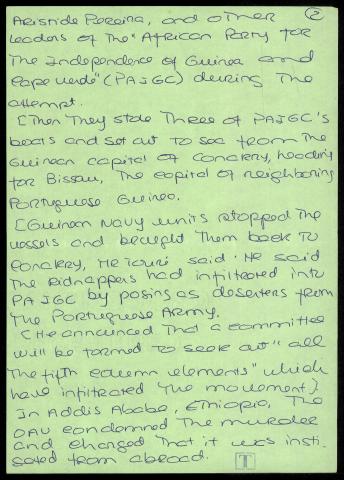 ②
Aristide Pereira, and other
leaders of the "African Party for
The Independence of Guinea and
Cape Verde" (PAIGC) during the
attempt.
[Then They stole Three of PAIGC's
boats and set out to sea from The
Guinean capital of Conakry, heading
for Bissau, The capital of neighboring
Portuguese Guinea.
[Guinean Navy units stopped The
vessels and brought Them back To
Conakry, He Touré said. He said
The kidnappers had infiltrated into
PAIGC by posing as deserters from
The Portuguese Army.
(He announced That a committee
will be formed to seek out "all
The fifth column elements" which
have infiltrated The movement.)
In Addis Ababa, Ethiopia, The
OAU condemned The murder
and charged That it was insti-
gated from abroad.
T